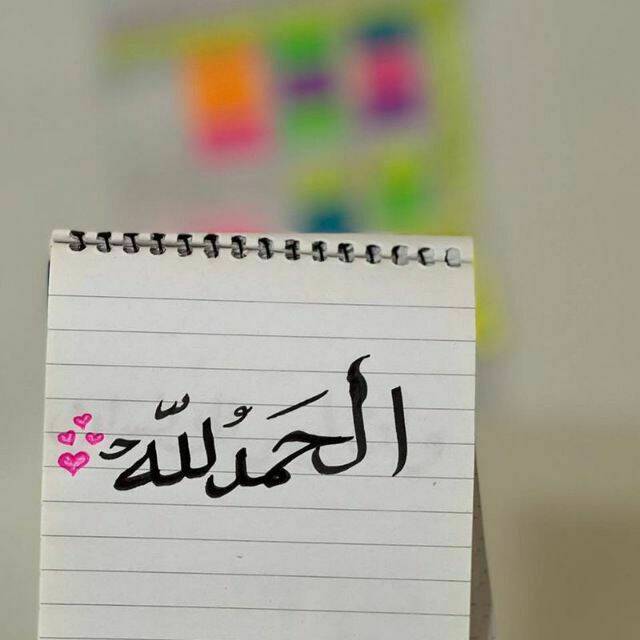 الْحَمدُ لِلّه